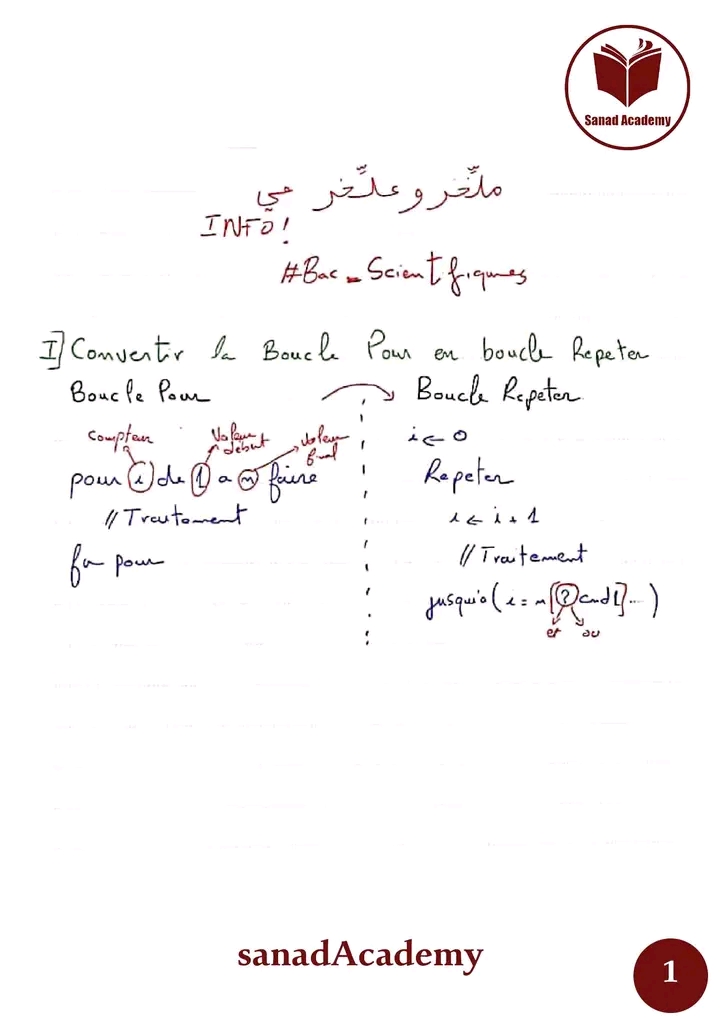 Sanad Academy
ملخر و علخر في
INFO!
#Bac_Scientifiques
I] Convertir la Boucle Pour en boucle Repeter
Boucle Pour
Boucle Repeter
compteur
Valeur debut
valeur final
pour i de 1 a n faire
// Traitement
fin pour
i ← 0
Repeter
i ← i + 1
// Traitement
jusqu'a (i = n [? cnd[]...)
et ou
sanadAcademy
1